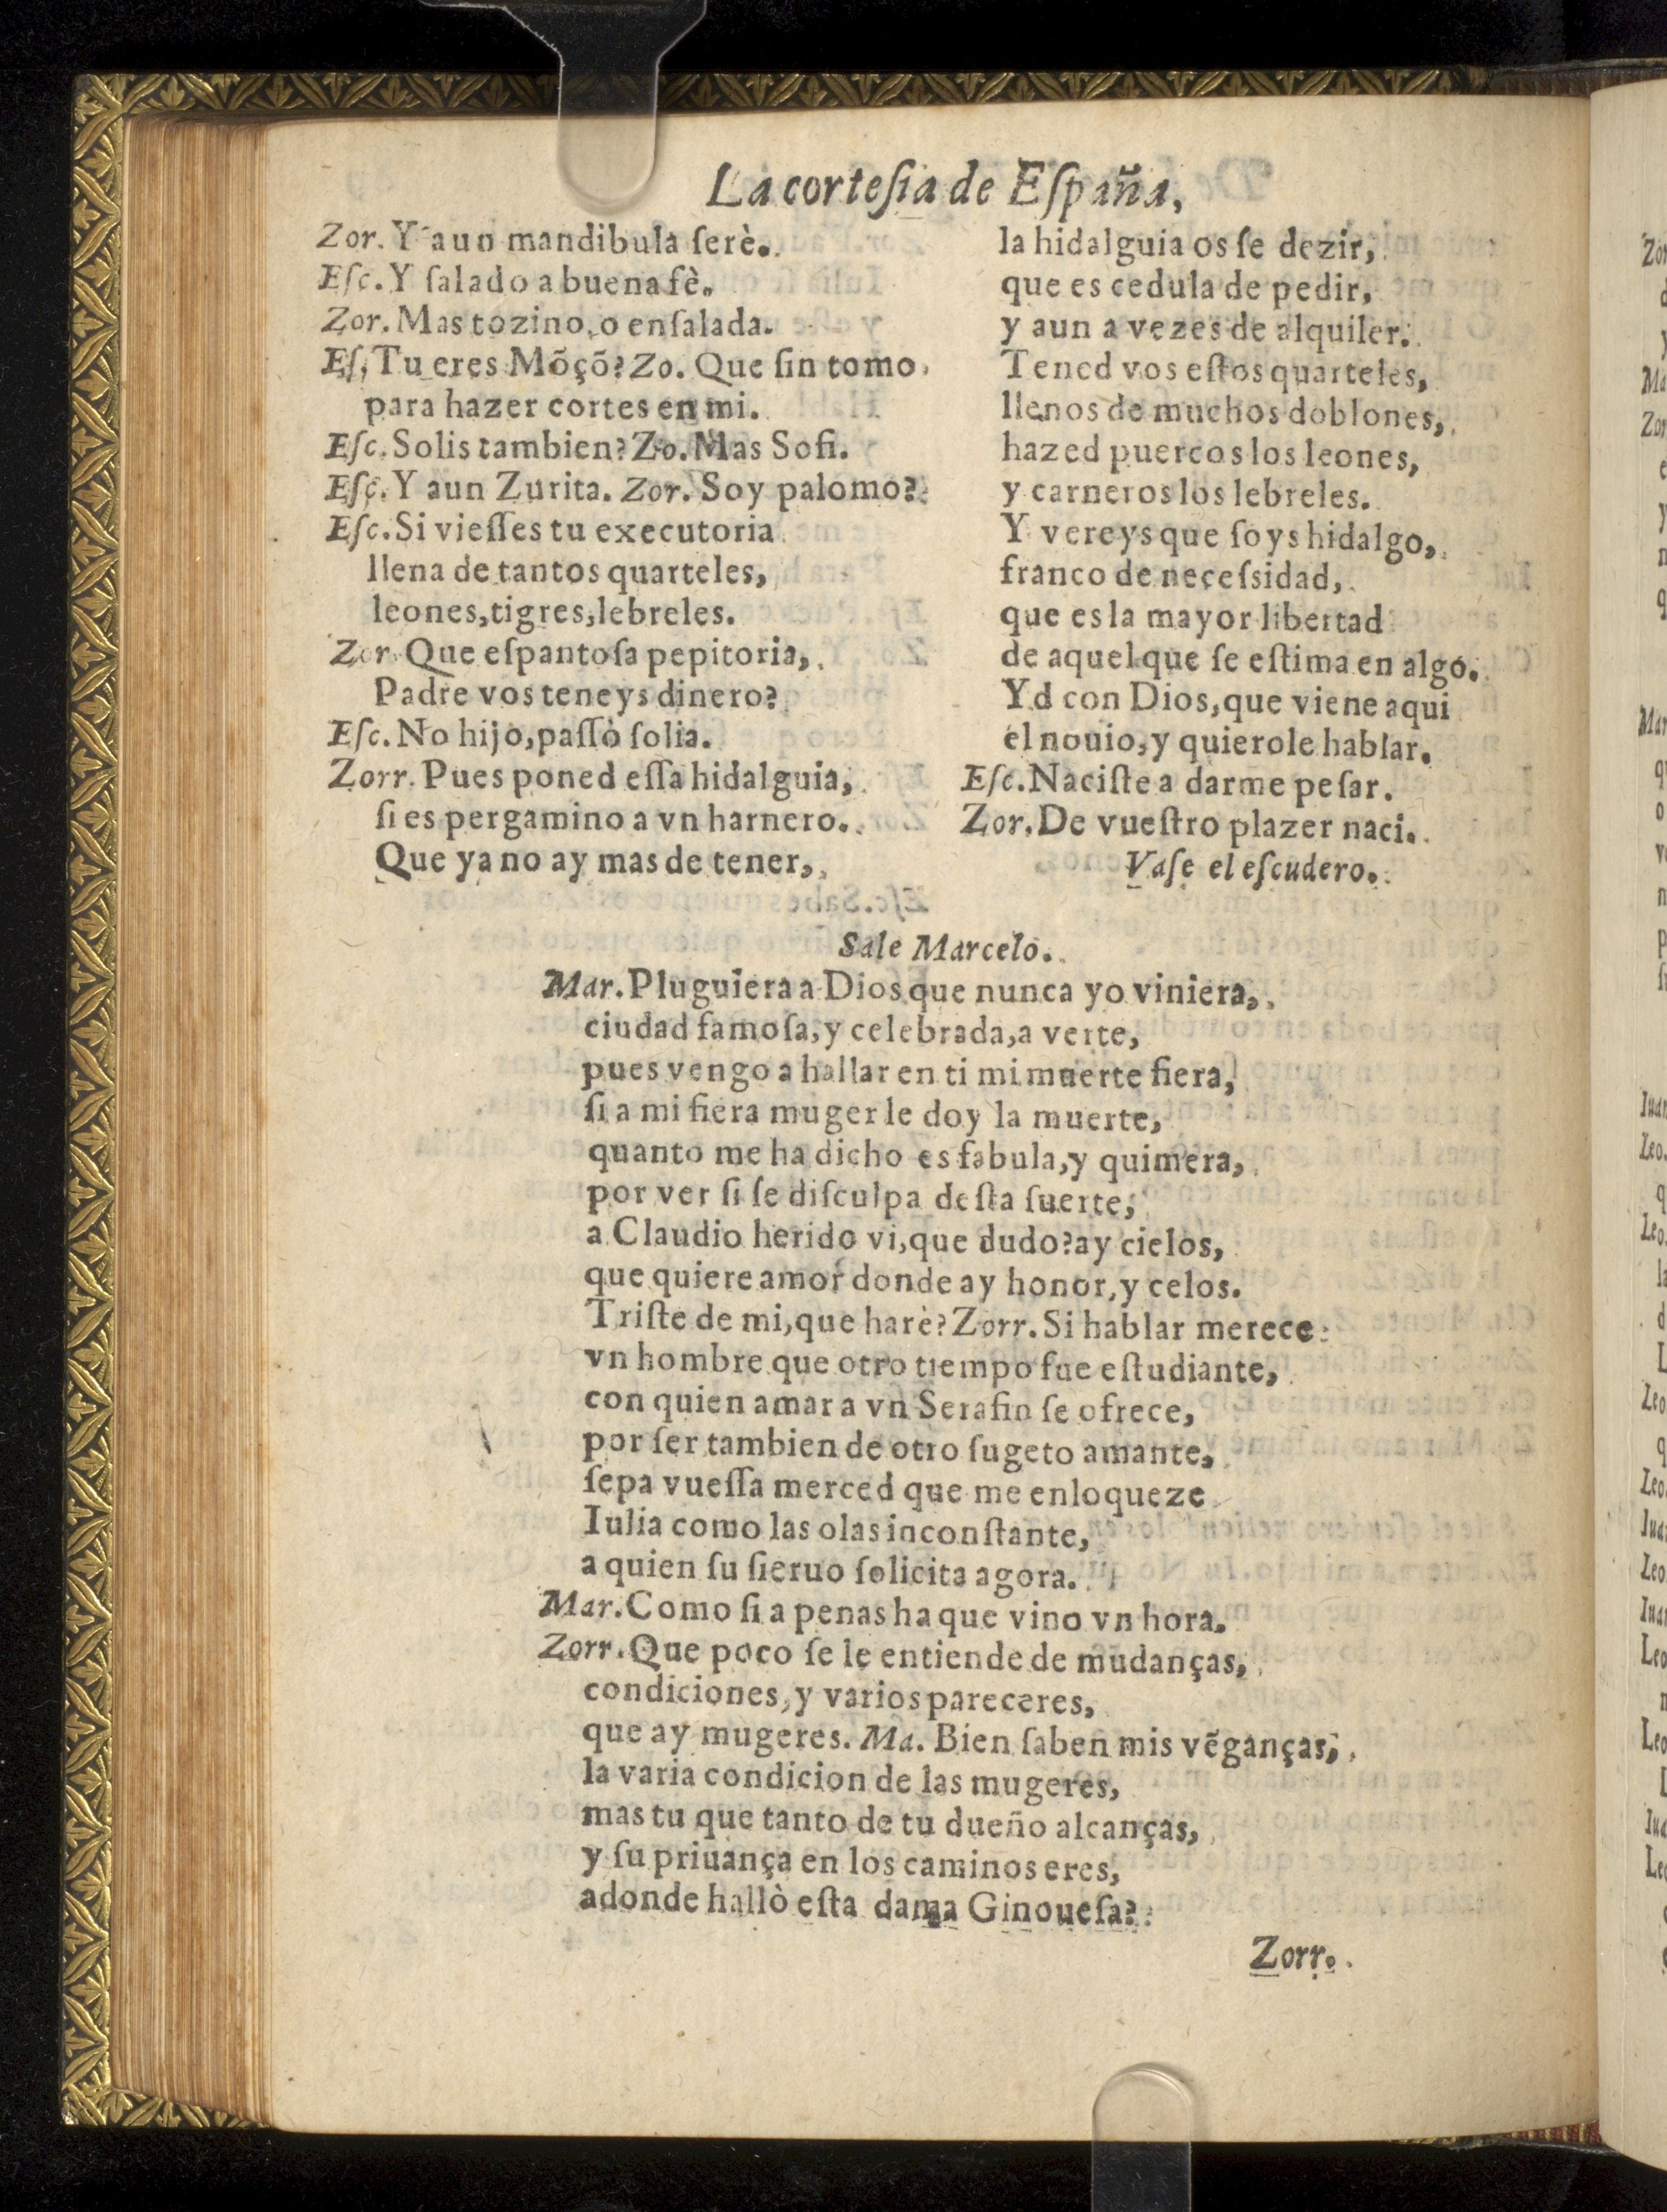 La corteſia de Eſpaña,
Zor. Y aun mandibula ſerè.
Eſc. Y ſalado a buena fè.
Zor. Mas tozino, o enſalada.
Eſ. Tu eres Mõçõ? Zo. Que ſin tomo
para hazer cortes en mi.
Eſc. Solis tambien? Zo. Mas Sofi.
Eſc. Y aun Zurita. Zor. Soy palomo?
Eſc. Si vieſſes tu executoria
llena de tantos quarteles,
leones, tigres, lebreles.
Zor. Que eſpantoſa pepitoria,
Padre vos teneys dinero?
Eſc. No hijo, paſſò ſolia.
Zorr. Pues poned eſſa hidalguia,
ſi es pergamino a vn harnero.
Que ya no ay mas de tener,
la hidalguia os ſe dezir,
que es cedula de pedir,
y aun a vezes de alquiler.
Tened vos eſtos quarteles,
llenos de muchos doblones,
hazed puercos los leones,
y carneros los lebreles.
Y vereys que ſoys hidalgo,
franco de neceſsidad,
que es la mayor libertad
de aquel que ſe eſtima en algo.
Yd con Dios, que viene aqui
el nouio, y quierole hablar.
Eſc. Naciſte a darme peſar.
Zor. De vueſtro plazer naci.
Vaſe el eſcudero.
Sale Marcelo.
Mar. Pluguiera a Dios que nunca yo viniera,
ciudad famoſa, y celebrada, a verte,
pues vengo a hallar en ti mi muerte fiera,
ſi a mi fiera muger le doy la muerte,
quanto me ha dicho es fabula, y quimera,
por ver ſi ſe diſculpa deſta ſuerte,
a Claudio herido vi, que dudo? ay cielos,
que quiere amor donde ay honor, y celos.
Triſte de mi, que harè? Zorr. Si hablar merece
vn hombre que otro tiempo fue eſtudiante,
con quien amar a vn Serafin ſe ofrece,
por ſer tambien de otro ſugeto amante,
ſepa vueſſa merced que me enloqueze
Iulia como las olas inconſtante,
a quien ſu ſieruo ſolicita agora.
Mar. Como ſi a penas ha que vino vn hora.
Zorr. Que poco ſe le entiende de mudanças,
condiciones, y varios pareceres,
que ay mugeres. Ma. Bien ſaben mis vẽganças,
la varia condicion de las mugeres,
mas tu que tanto de tu dueño alcanças,
y ſu priuança en los caminos eres,
adonde hallò eſta dama Ginoueſa?
Zorr.